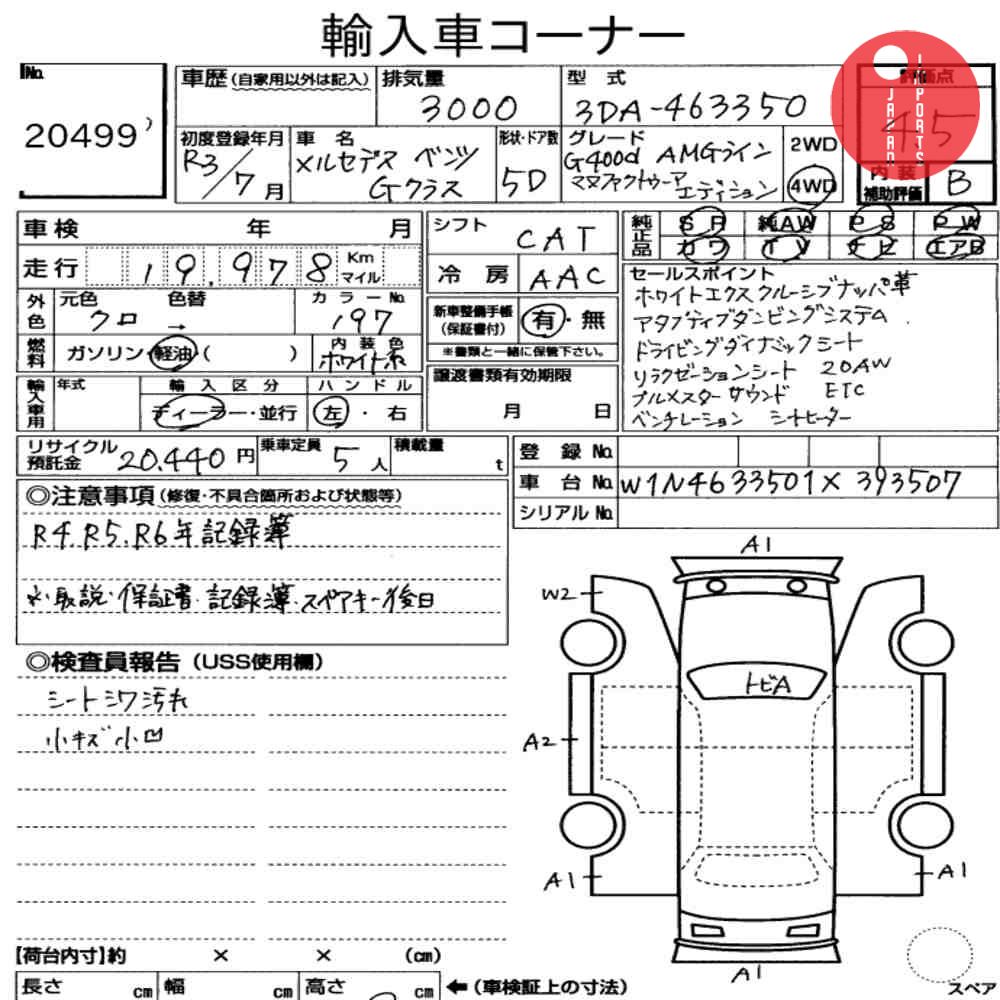 輸入車コーナー
No.
20499
車歴 (自家用以外は記入)
排気量
3000
型 式
3DA-463350
評価点
4.5
JAPAN
IMPORTS
初度登録年月
R3/7月
車 名
メルセデス ベンツ
Gクラス
形状・ドア数
5D
グレード
G400d AMGライン
マヌファクトゥーア エディション
2WD
4WD
内 装
補助評価
B
車検 年 月
走行 19,978 Km マイル
シフト
CAT
冷 房
AAC
純正品
SR 純AW PS PW
カワ TV ナビ エアB
外色
元色 色替
クロ →
カラーNo.
197
新車整備手帳
(保証書付)
有・無
※書類と一緒に保管下さい。
燃料
ガソリン・軽油 ( )
内装色
ホワイト系
輸入車用
年式
輸 入 区 分
ディーラー・並行
ハ ン ド ル
左・右
譲渡書類有効期限
月 日
セールスポイント
ホワイトエクスクルーシブナッパ革
アダプティブダンピングシステム
ドライビングダイナミックシート
リラクゼーションシート 20AW
ブルメスターサウンド ETC
ベンチレーション シートヒーター
リサイクル
預託金
20,440円
乗車定員
5人
積載量
t
登 録 No.
車 台 No. W1N4633501X393507
シリアル No.
◎注意事項 (修復・不具合箇所および状態等)
R4.R5.R6年記録簿
※取説・保証書・記録簿・スペアキー後日
◎検査員報告 (USS使用欄)
シートシワ汚れ
小キズ小凹
A1
W2
トビA
A2
A1
A1
A1
スペア
【荷台内寸】約 × × (cm)
長さ cm 幅 cm 高さ cm
←(車検証上の寸法)